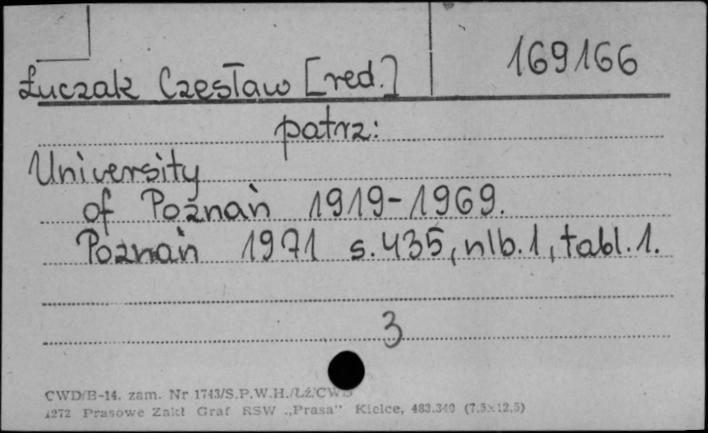 Łuczak Czesław [red.] 169166
patrz:
University
of Poznań 1919-1969.
Poznań 1971 s.435, nlb.1, tabl.1.
3
CWD/B-14. zam. Nr 1743/S.P.W.H./Łź/CWD
1272 Prasowe Zakł Graf RSW „Prasa" Kielce, 483.340 (7,5×12,5)